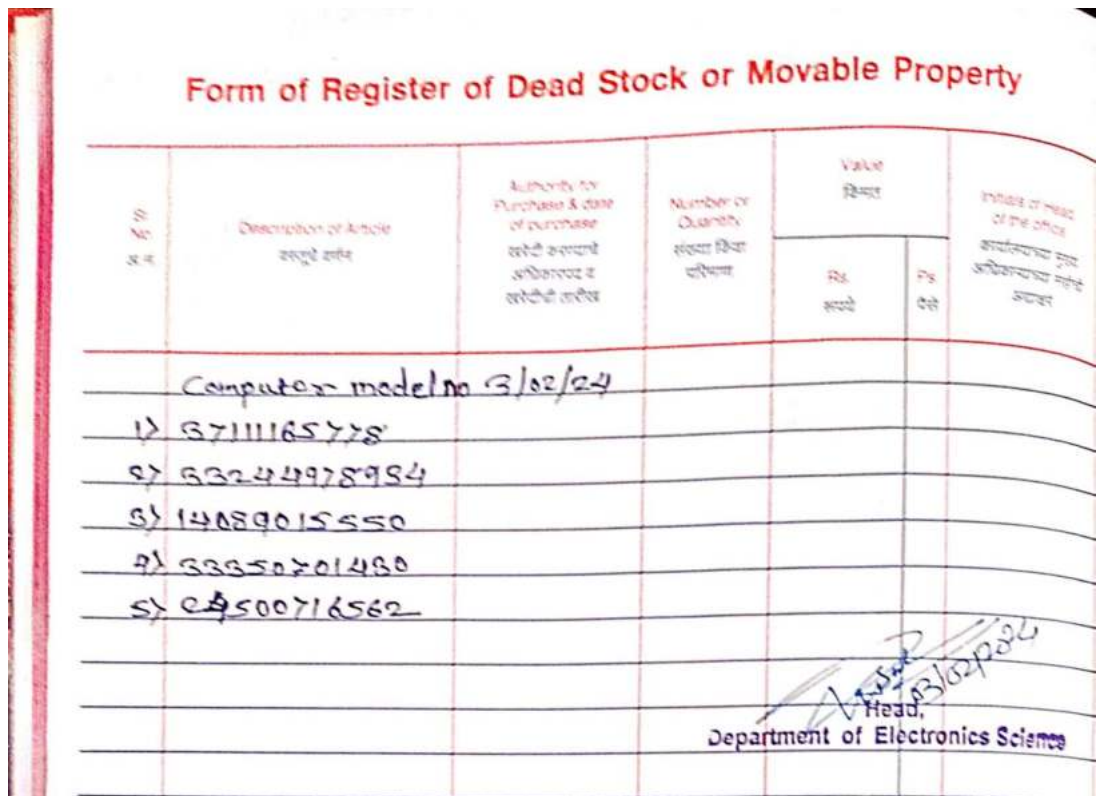 Form of Register of Dead Stock or Movable Property
Sr. No. अ. नं.
Description of Article
वस्तूचे वर्णन
Authority for Purchase & date of purchase
खरेदी करण्याचे अधिकारपद व खरेदीची तारीख
Number or Quantity
संख्या किंवा परिमाण
Value
किंमत
Rs.
रुपये
Ps.
पैसे
Initials of Head of the office
कार्यालयाच्या मुख्य अधिकाऱ्याच्या सहीचे अद्याक्षर
Computer model no 3/02/24
1) 37111165778
2) 33244978984
3) 14089015550
4) 33350701430
5) 500716562
03/02/2024
Head,
Department of Electronics Science